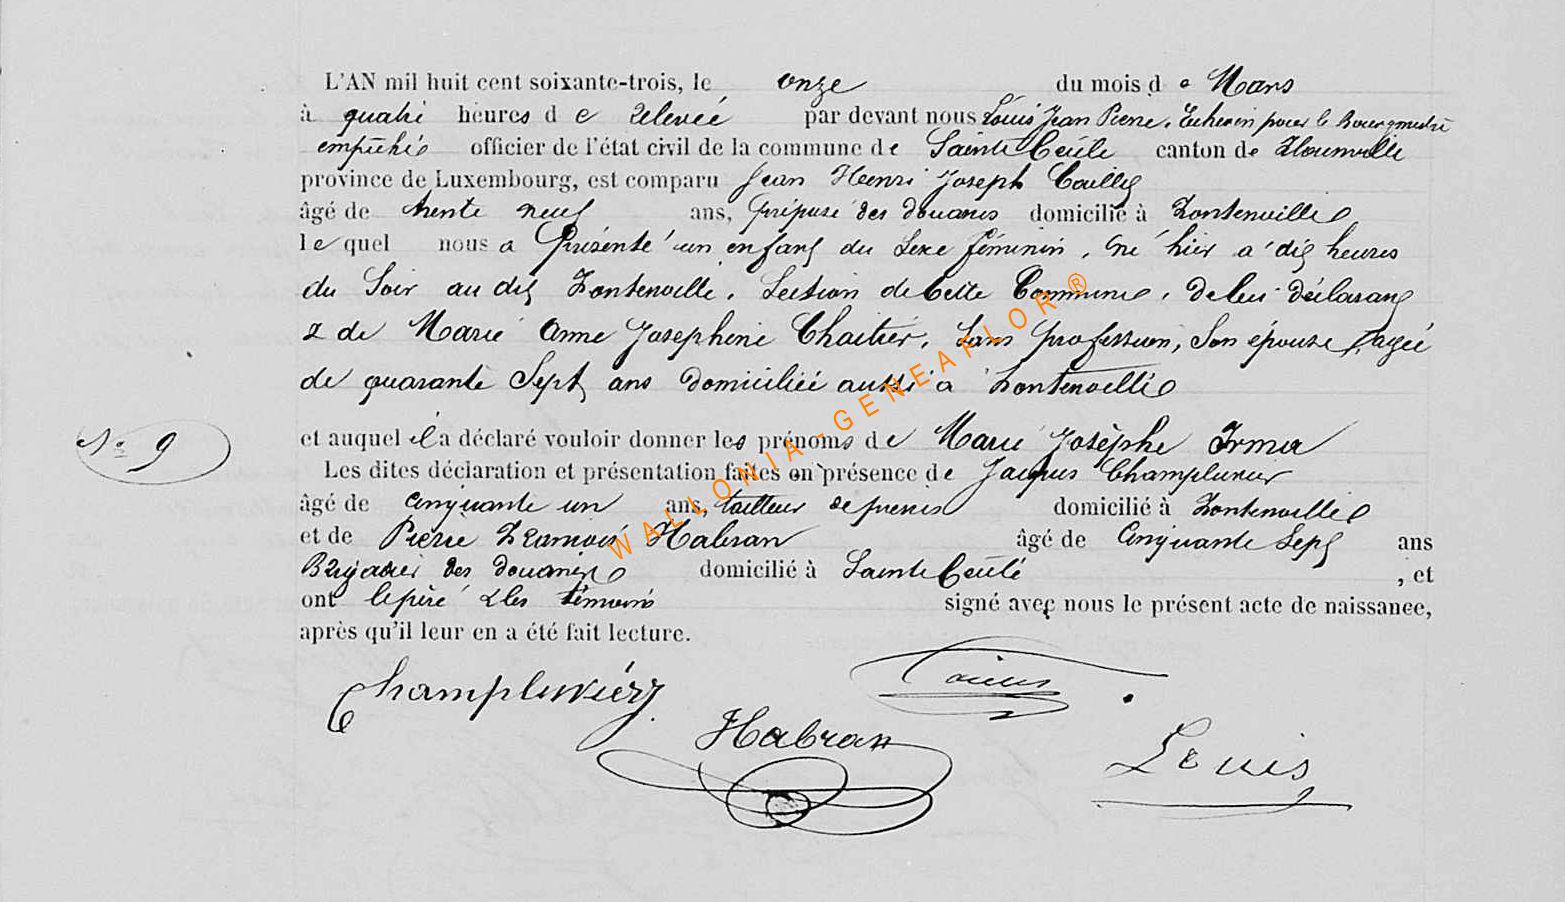 L'AN mil huit cent soixante-trois, le onze du mois de Mars
à quatre heures de relevée par devant nous Louis Jean Pierre, Echevin pour le Bourgmestre
empêché officier de l'état civil de la commune de Sainte Cécile canton de Florenville
province de Luxembourg, est comparu Jean Henri Joseph
âgé de trente neuf ans, préposé des douanes domicilié à Fontenoille
lequel nous a Présenté un enfant du Sexe féminin, né hier à dix heures
du Soir au dit Fontenoille, Section de Cette Commune, de lui déclarant
& de Marie Anne Josephine, Sans profession, Son épouse, agée
de quarante Sept ans domiciliée aussi à Fontenoille
et auquel il a déclaré vouloir donner les prénoms de Marie Josèphe Irma
N° 9
Les dites déclaration et présentation faites en présence de Jacques
âgé de cinquante un ans, tailleur de pierres domicilié à Fontenoille
et de Pierre François Habran âgé de Cinquante Sept ans
Brigadier des douanes domicilié à Sainte Cécile , et
ont le père & les témoins signé avec nous le présent acte de naissance,
après qu'il leur en a été fait lecture.
Habran
Louis
WALLONIA-GENEAFLOR ®